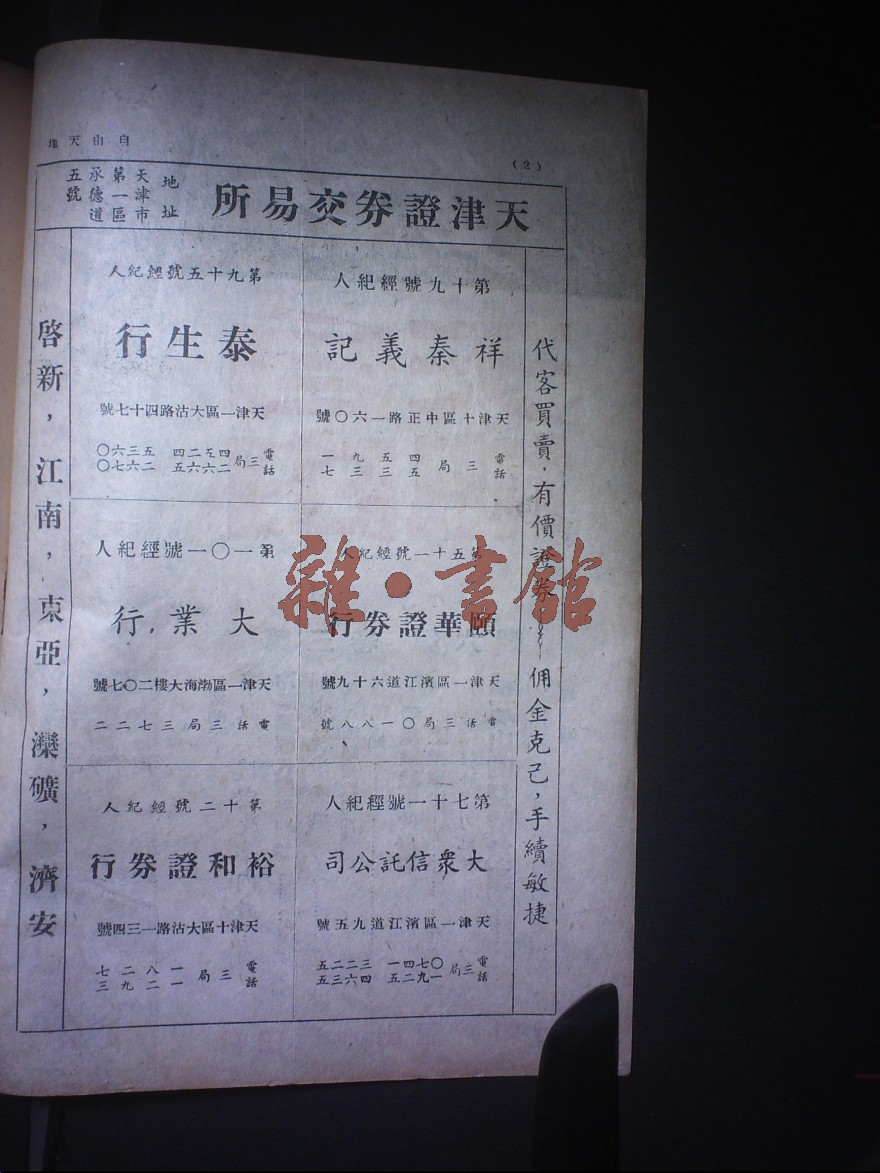 自由天地
(2)
天津證券交易所
地址
天津市
第一區
承德道
五號
代客買賣．有價證券⋯⋯佣金克己，手續敏捷
第十九號經紀人
祥泰義記
天津十區中正路一六〇號
電話三局
四五九一
五三三七
第九十五號經紀人
泰生行
天津一區大沽路四十七號
電話三局
四五二四 五三六〇
二六六五 二六七〇
第五十一號經紀人
頤華證券行
天津一區濱江道六十九號
電話三局〇一八八號
第一〇一號經紀人
大業行
天津一區渤海大樓二〇七號
電話三局三七二二
第七十一號經紀人
大衆信託公司
天津一區濱江道九五號
電話三局
〇七四一 三二二五
一九二五 四六三五
第十二號經紀人
裕和證券行
天津十區大沽路一三四號
電話三局
一八二七
一二九三
啓新，江南，東亞，灤礦，濟安
雜·書館